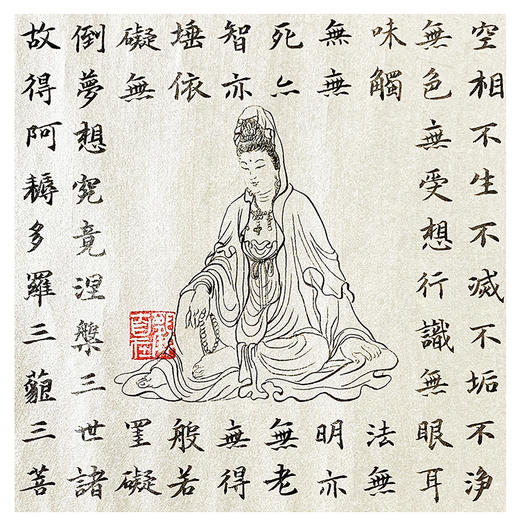 空相不生不滅不垢不浄
無色無受想行識無眼耳
味觸法無
無無明亦
死亦無老
智亦無得
埵依般若
礙無罣礙
倒夢想究竟涅槃三世諸
故得阿耨多羅三藐三菩